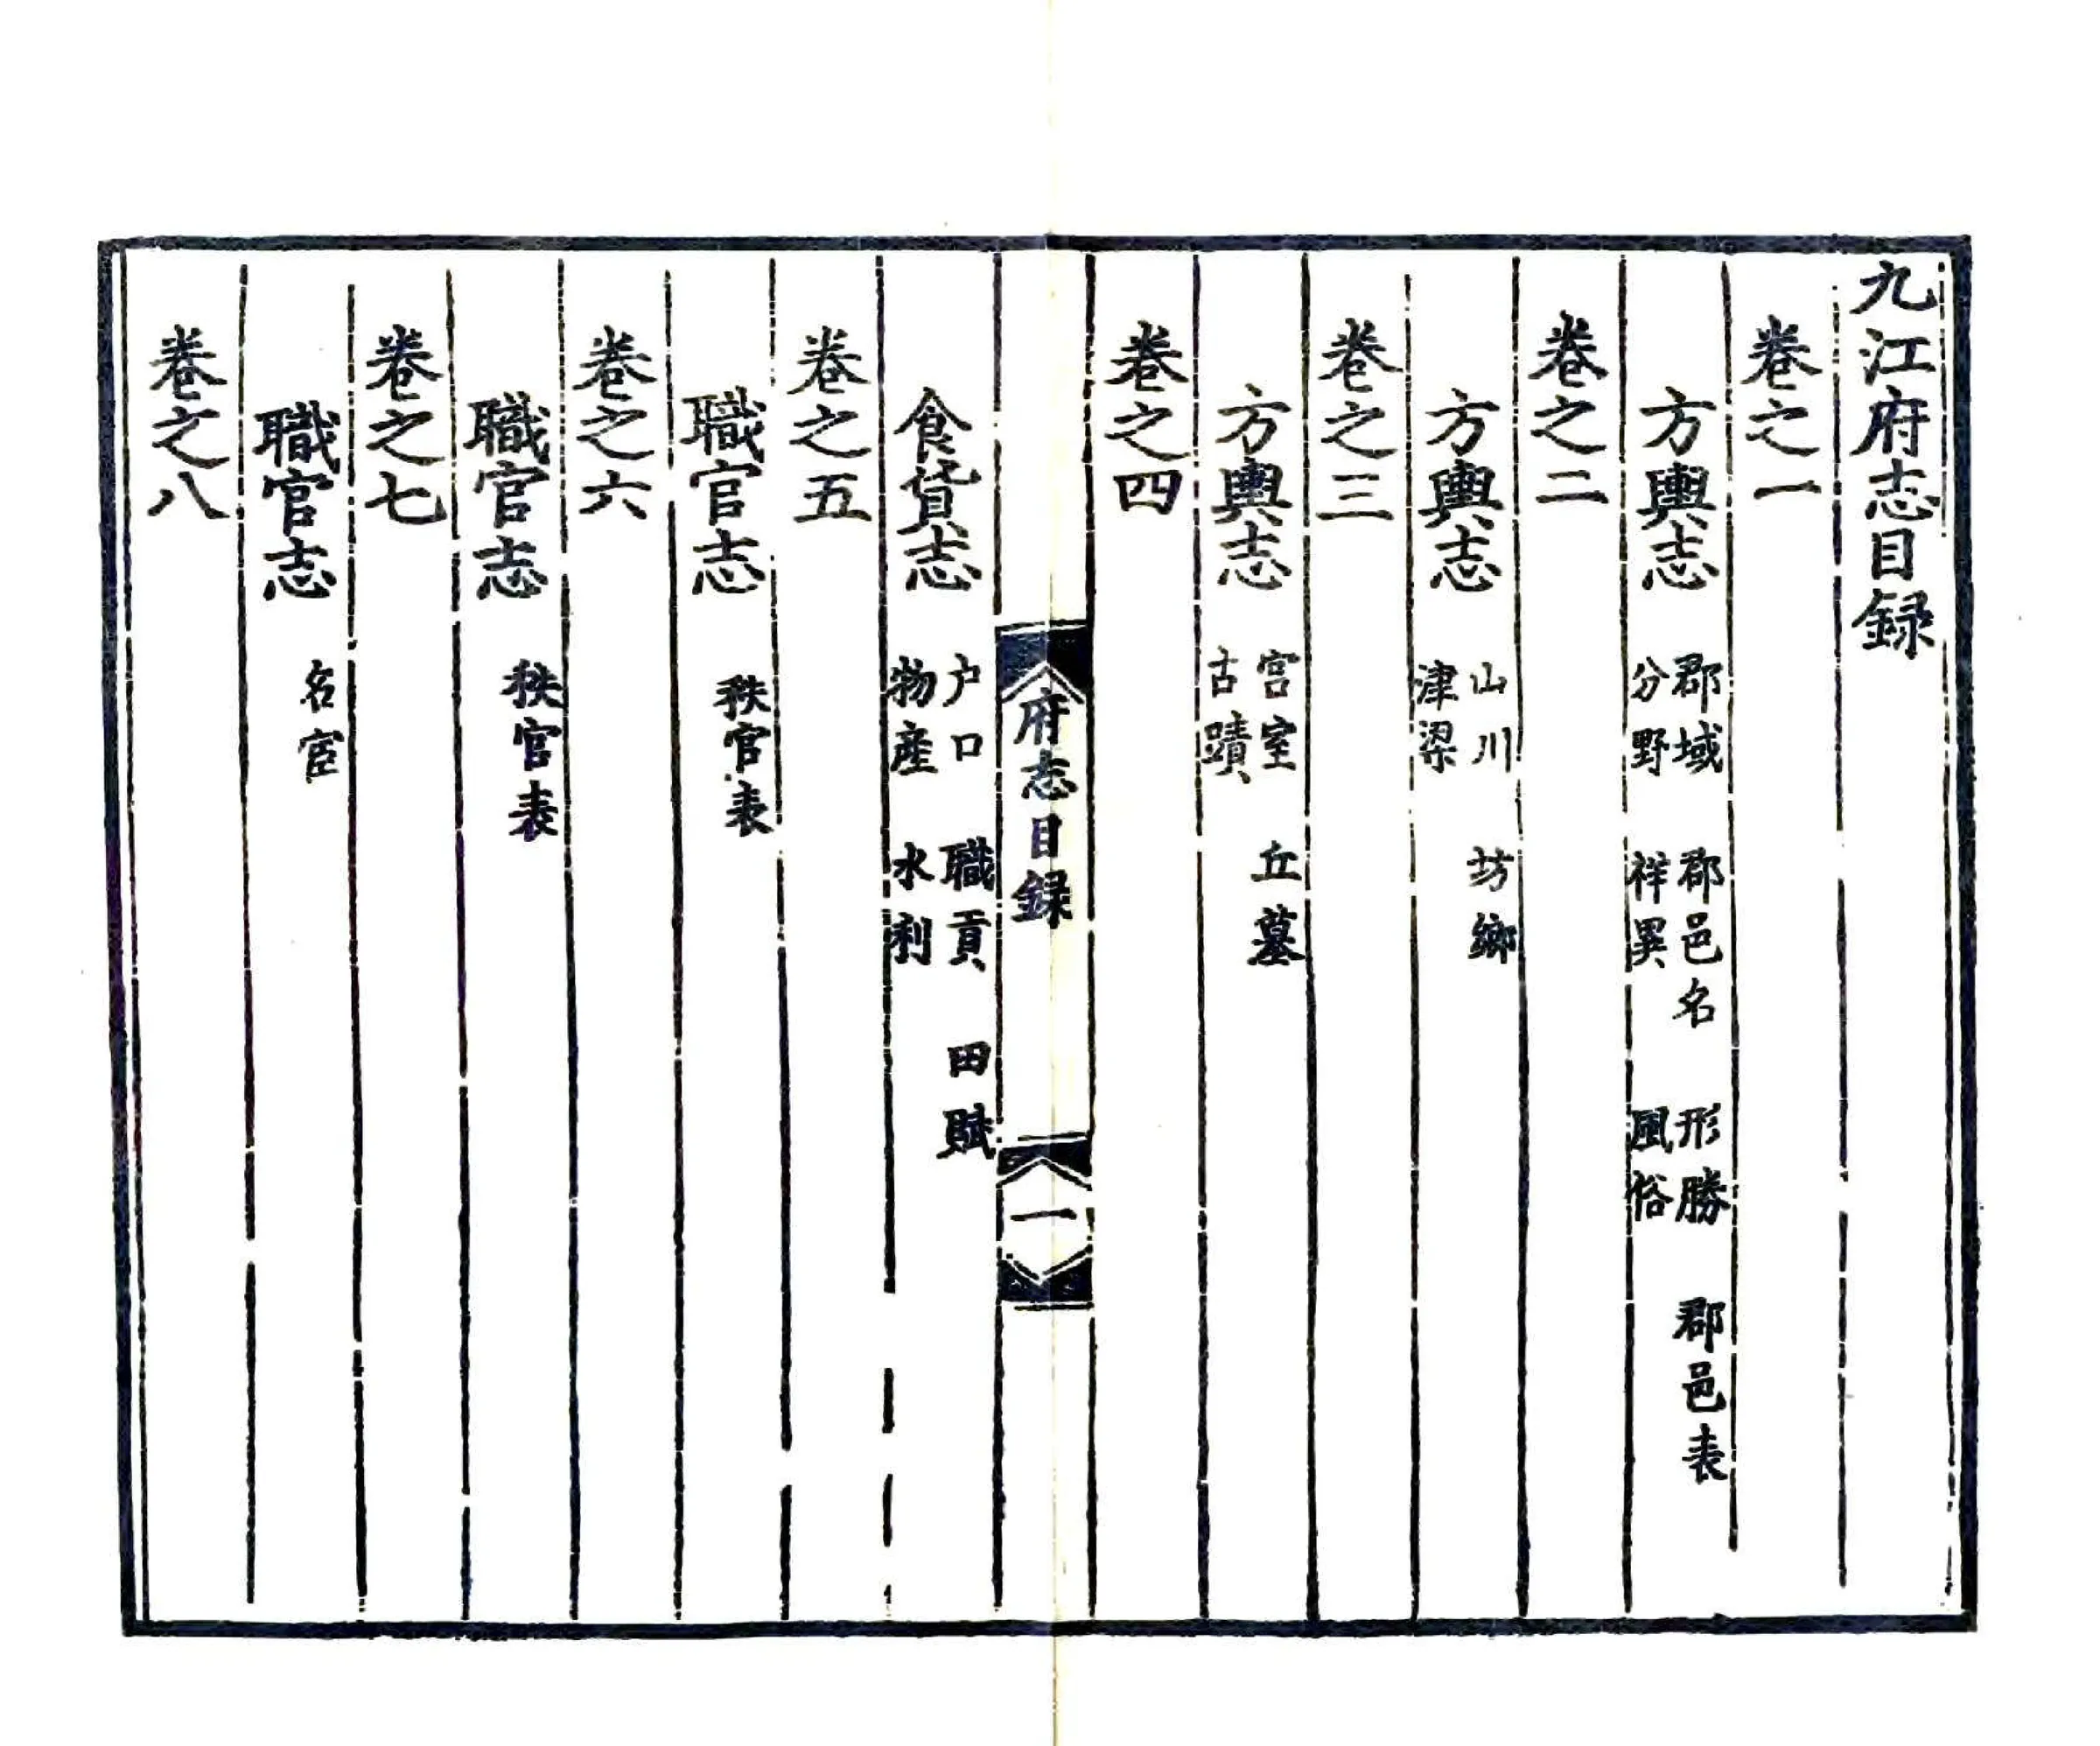 九江府志目録
卷之一
方輿志 郡域 郡邑名 形勝 郡邑表
分野 祥異 風俗
卷之二
方輿志 山川 坊鄉
津梁
卷之三
方輿志 宮室 丘墓
古蹟
卷之四
府志目録 一
食貨志 户口 職貢 田賦
物產 水利
卷之五
職官志 秩官表
卷之六
職官志 秩官表
卷之七
職官志 名宦
卷之八